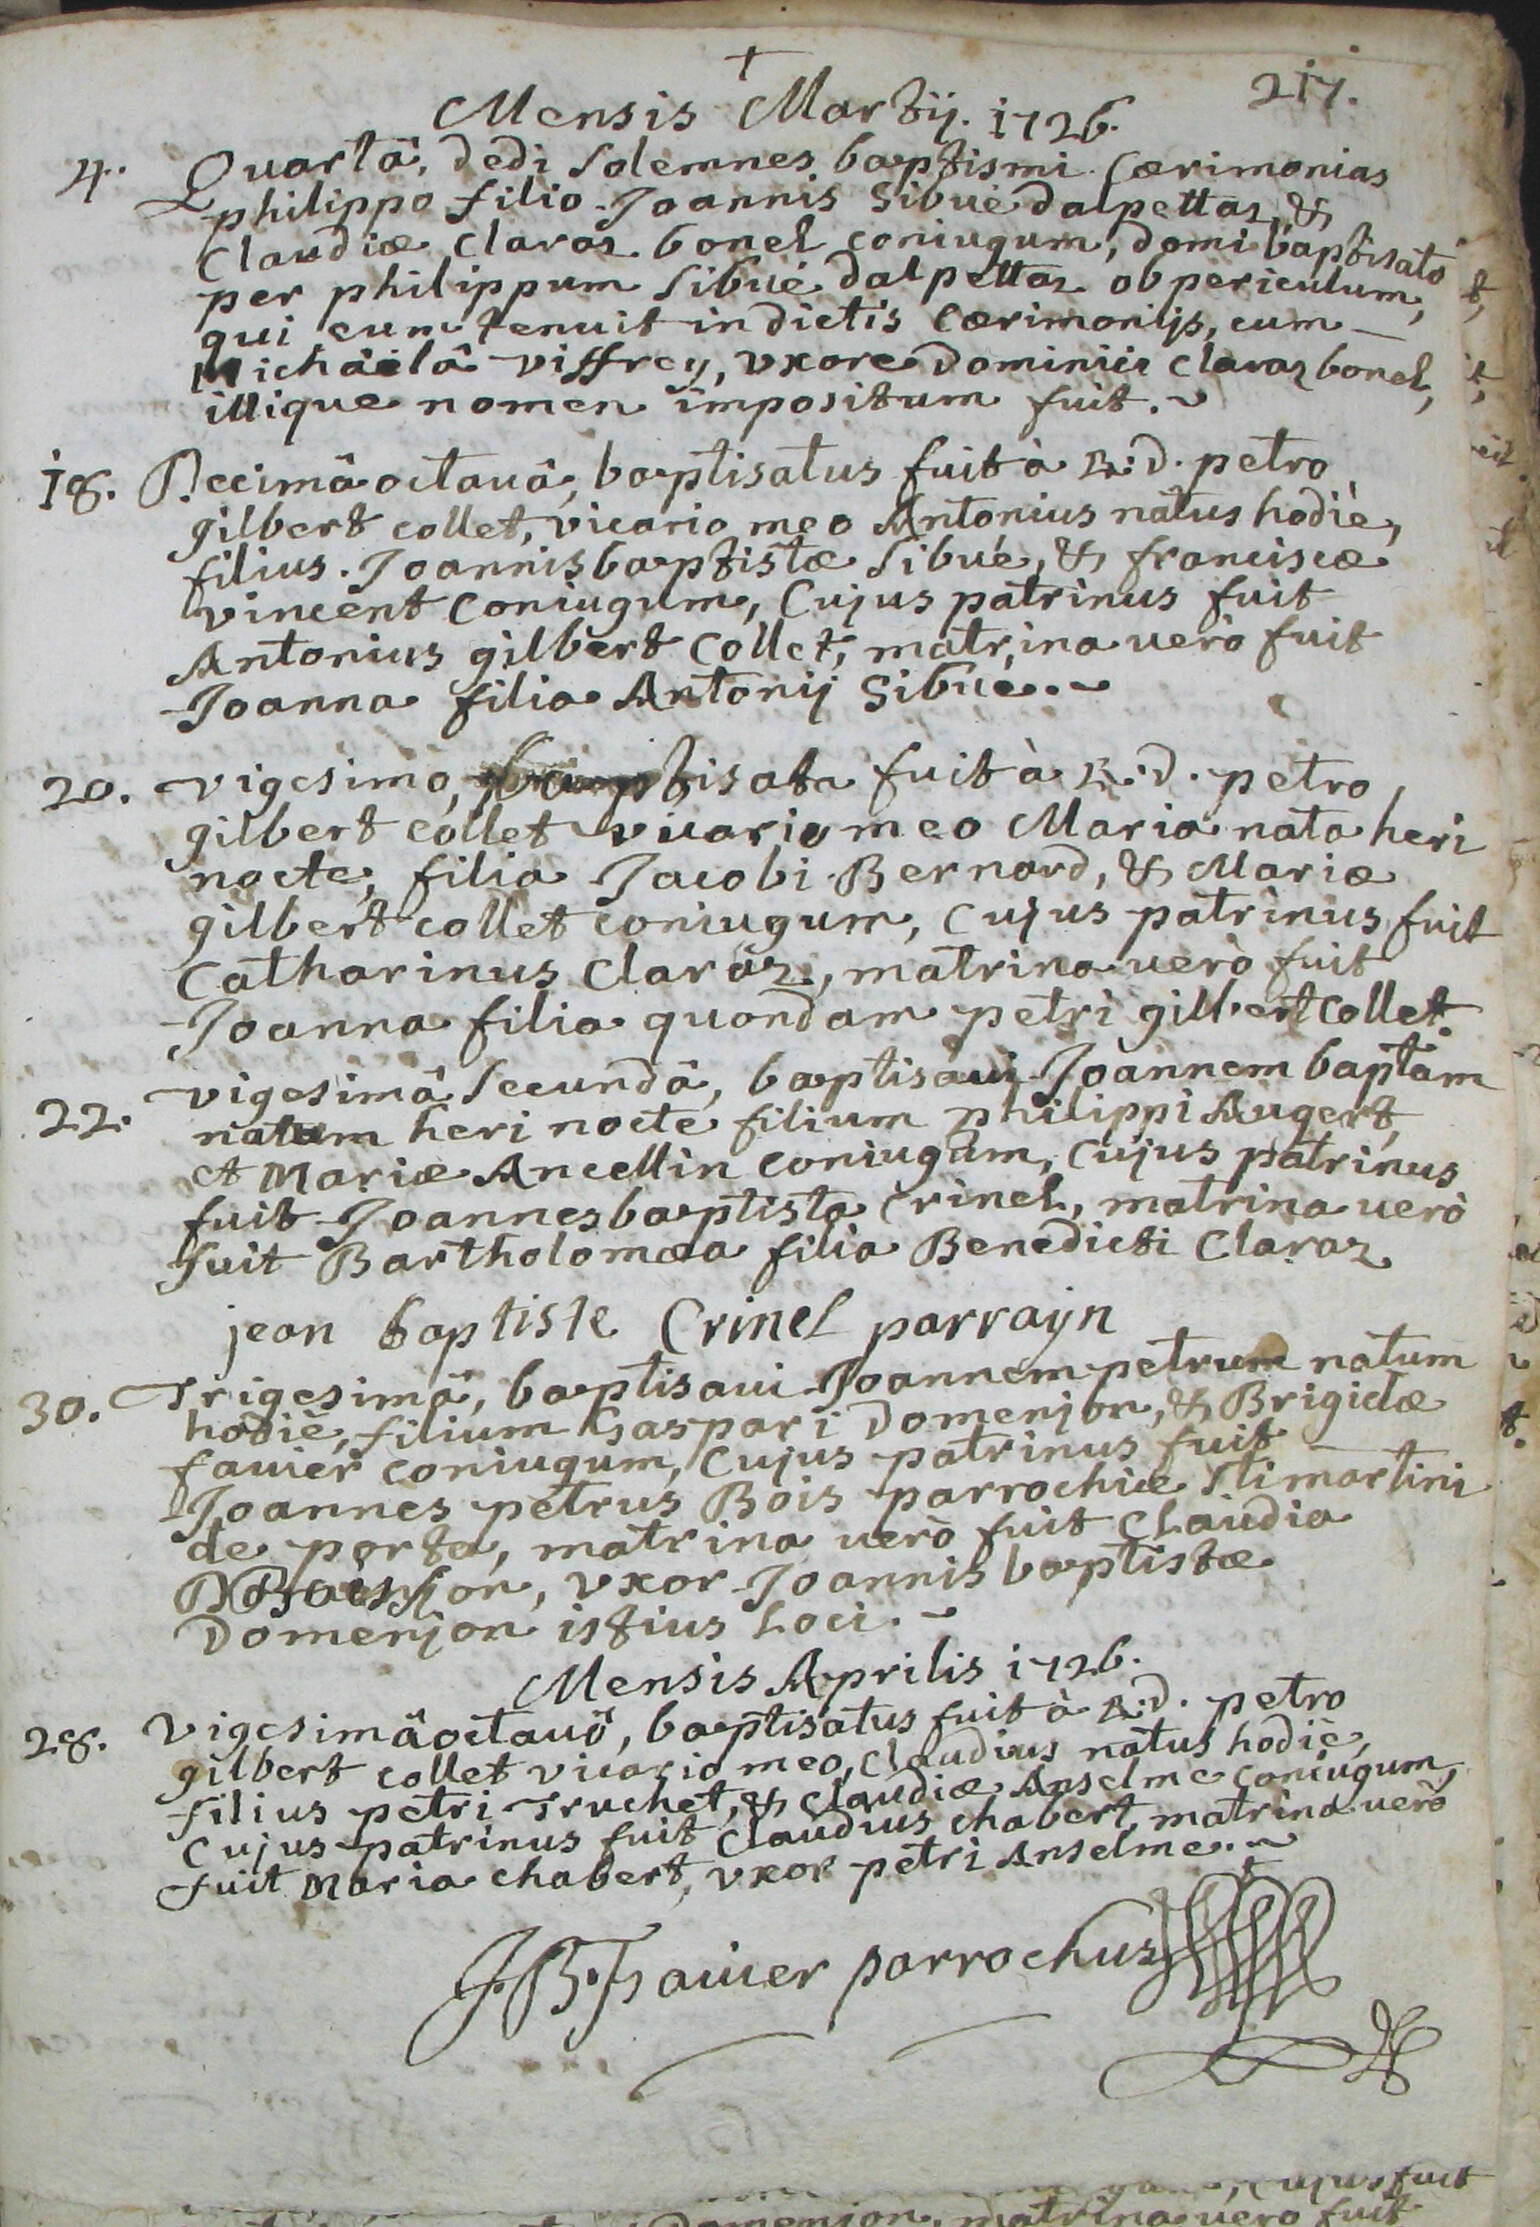 †
217.
Mensis Martij. 1726.
4. Quartâ, dedi solemnes baptismi Cærimonias
philippo filio Joannis Sibué dalpettaz, &
Claudiæ Claraz bonel coniugum, domi baptisato
per philippum Sibué dalpettaz ob periculum,
qui eum tenuit in dictis Cærimonijs, cum
Michäelâ Viffrey, vxore Dominici Claraz bonel,
illique nomen impositum fuit.
18. Decimâ octauâ, baptisatus fuit à R.D. petro
gilbert collet, vicario meo Antonius natus hodiè,
filius Joannisbaptistæ Sibué, & franciscæ
vincent Coniugum, Cujus patrinus fuit
Antonius gilbert Collet, matrina uerò fuit
Joanna filia Antonij Sibué.
20. vigesima, baptisata fuit à R.D. petro
gilbert collet vicario meo Maria nata heri
nocte, filia Jacobi Bernard, & Mariæ
gilbert collet coniugum, Cujus patrinus fuit
Catharinus Claraz, matrina uerò fuit
Joanna filia quondam petri gilbert Collet.
22. vigesimâ secundâ, baptisaui Joannem baptam
natum heri nocte filium philippi Augert,
et Mariæ Ancellin coniugum, Cujus patrinus
fuit Joannesbaptista Crinel, matrina uerò
fuit Bartholomæa filia Benedicti Claraz
jean baptiste Crinel parrayn
30. Trigesimâ, baptisaui Joannempetrum natum
hodiè, filium Gaspari Domenjon, & Brigidæ
fauier coniugum, Cujus patrinus fuit
Joannes petrus Bois parrochiæ Sti martini
de porta, matrina uerò fuit Claudia
Boisson, vxor Joannis baptistæ
Domenjon istius Loci.
Mensis Aprilis 1726.
28. Vigesimâoctauâ, baptisatus fuit à R.D. petro
gilbert collet vicario meo, Claudius natus hodiè,
filius petri Truchet, & Claudiæ Anselme Coniugum,
Cujus patrinus fuit Claudius chabert, matrina uerò
fuit Maria chabert, vxor petri Anselme.
J.B. Fauier parrochus
Cujus fuit
Domenjon, matrina uero fuit